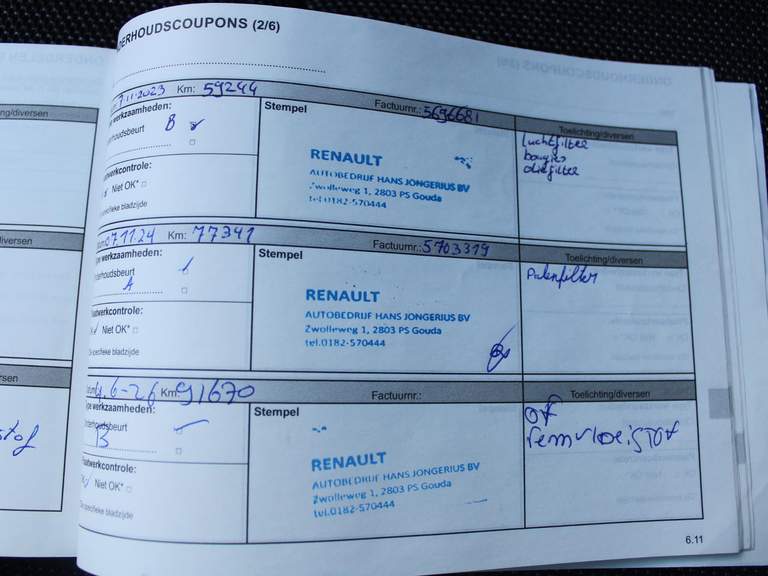 DERHOUDSCOUPONS (2/6)
7.11.2023 Km: 59244
Factuurnr.: 5696681
werkzaamheden:
Stempel
Toelichting/diversen
erhoudsbeurt B
luchtfilter
bougies
oliefilter
RENAULT
AUTOBEDRIJF HANS JONGERIUS BV
Zwolleweg 1, 2803 PS Gouda
tel.0182-570444
twerkcontrole:
Niet OK*
specifieke bladzijde
07.11.24 Km: 77341
Factuurnr.: 5703319
werkzaamheden:
Stempel
Toelichting/diversen
nderhoudsbeurt
A
Pollenfilter
RENAULT
AUTOBEDRIJF HANS JONGERIUS BV
Zwolleweg 1, 2803 PS Gouda
tel.0182-570444
laatwerkcontrole:
Niet OK*
specifieke bladzijde
6-26 Km: 91670
Factuurnr.:
werkzaamheden:
Stempel
Toelichting/diversen
nderhoudsbeurt
B
of
remvloeistof
RENAULT
AUTOBEDRIJF HANS JONGERIUS BV
Zwolleweg 1, 2803 PS Gouda
tel.0182-570444
laatwerkcontrole:
Niet OK*
specifieke bladzijde
6.11
hting/diversen
iversen
rsen
stof